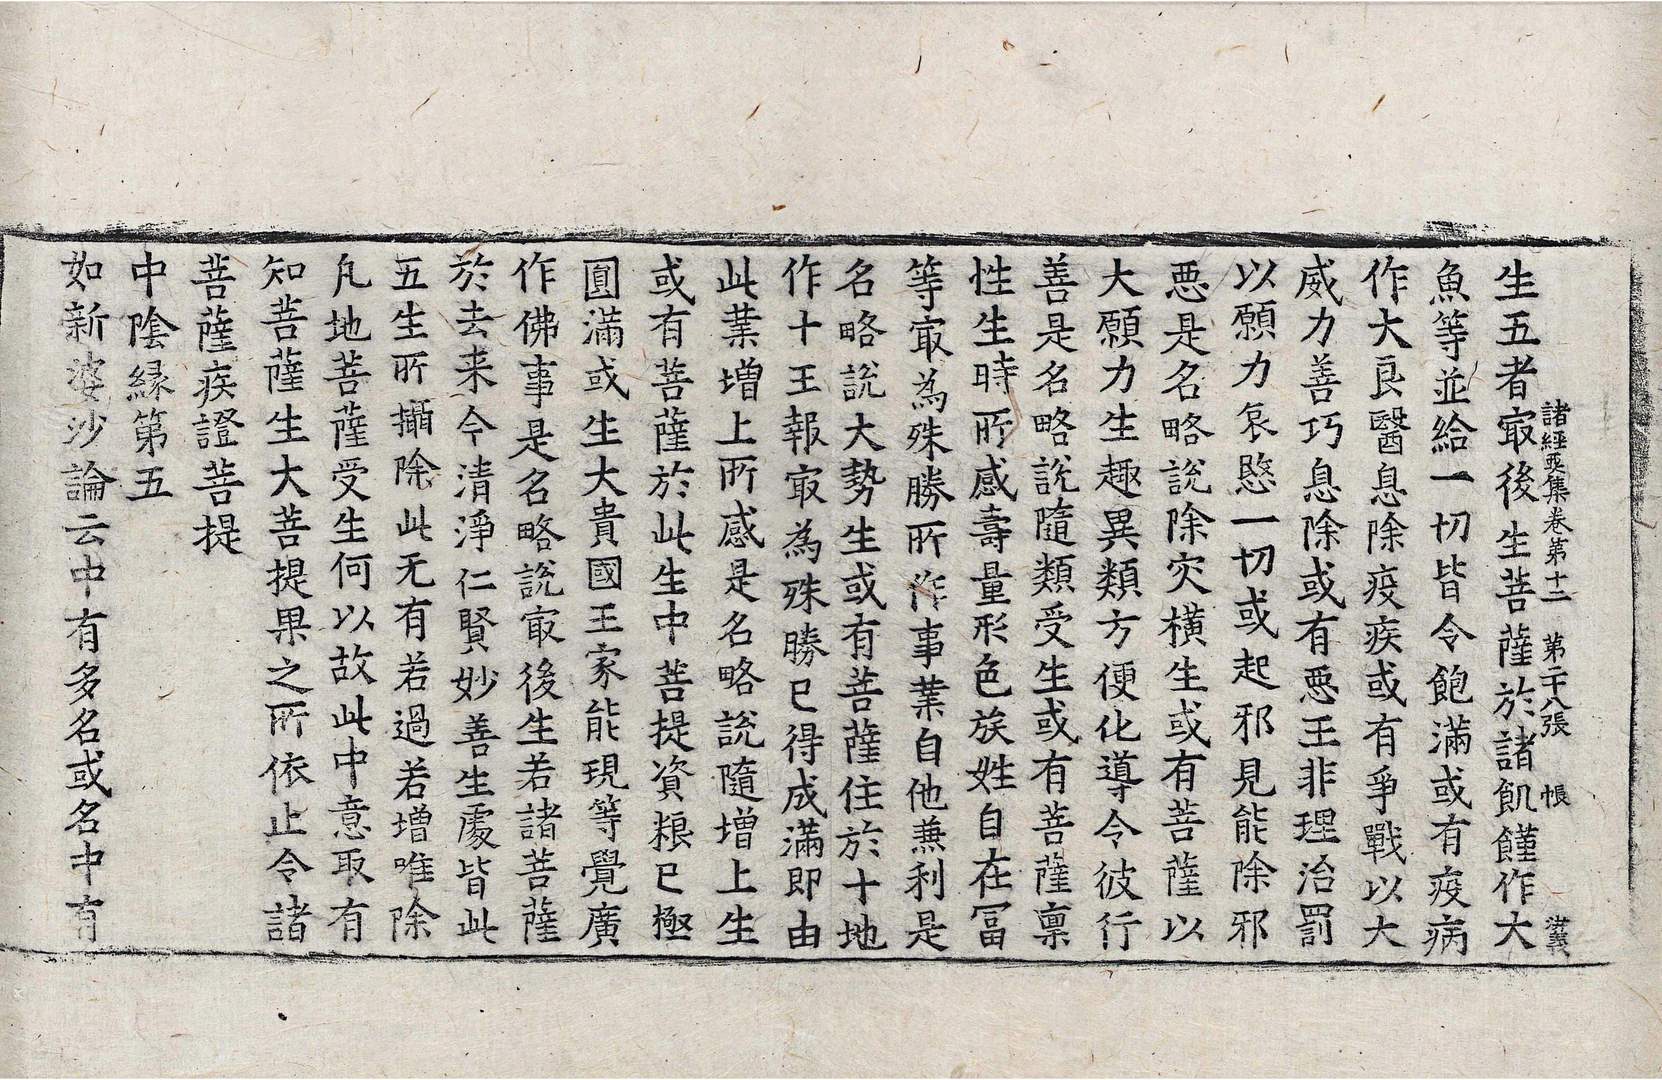 諸經要集卷第十二 第二十八張 帳 洪義
生五者㝡後生菩薩於諸飢饉作大
魚等並給一切皆令飽滿或有疫病
作大良醫息除疫疾或有爭戰以大
威力善巧息除或有惡王非理治罰
以願力哀愍一切或起邪見能除邪
惡是名略說除灾橫生或有菩薩以
大願力生趣異類方便化導令彼行
善是名略說隨類受生或有菩薩稟
性生時所感壽量形色族姓自在冨
等㝡為殊勝所作事業自他兼利是
名略說大勢生或有菩薩住於十地
作十王報㝡為殊勝已得成滿即由
此業增上所感是名略說隨增上生
或有菩薩於此生中菩提資粮已極
圓滿或生大貴國王家能現等覺廣
作佛事是名略說㝡後生若諸菩薩
於去来今清淨仁賢妙善生處皆此
五生所攝除此无有若過若增唯除
凡地菩薩受生何以故此中意取有
知菩薩生大菩提果之所依止令諸
菩薩疾證菩提
中陰緣第五
如新婆沙論云中有多名或名中有